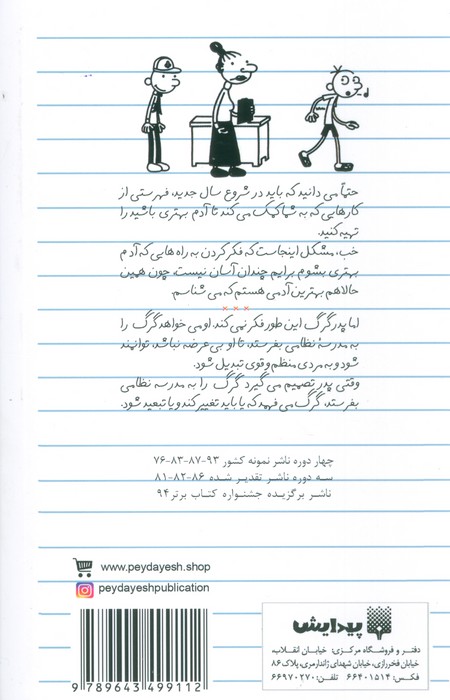 حتماً می دانید که باید در شروع سال جدید، فهرستی از
کارهایی که به شما کمک می کند تا آدم بهتری باشید را
تهیه کنید.
خب، مشکل اینجاست که فکر کردن به راه هایی که آدم
بهتری بشوم برایم چندان آسان نیست، چون همین
حالا هم بهترین آدمی هستم که می شناسم
× × ×
اما پدر گرگ این طور فکر نمی کند. او می خواهد گرگ را
به مدرسهٔ نظامی بفرستد، تا او بی عرضه نباشد، توانمند
شود و به مردی منظم و قوی تبدیل شود.
وقتی پدر تصمیم می گیرد گرگ را به مدرسه نظامی
بفرستد، گرگ می فهمد که یا باید تغییر کند و یا تبعید شود.
چهار دوره ناشر نمونه کشور ۹۳-۸۷-۸۳-۷۶
سه دوره ناشر تقدیر شده ۸۶-۸۲-۸۱
ناشر برگزیده جشنواره کتاب برتر ۹۴
www.peydayesh.shop
peydayeshpublication
پیدایش
دفتر و فروشگاه مرکزی: خیابان انقلاب،
خیابان فخررازی، خیابان شهدای ژاندارمری، پلاک ۸۶
فکس: ۶۶۴۰۱۵۱۴ تلفن: ۶۶۹۷۰۲۷۰
9 789643 499112